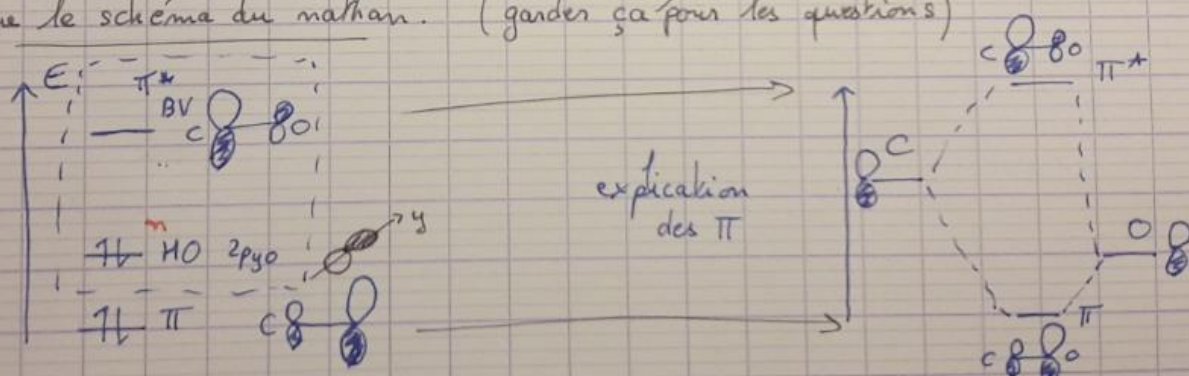 le schéma du nathan. (garder ça pour les questions)
E
π*
BV
C O
n
HO 2pyo y
π C
explication
des π
C O π*
C
O
π
C O